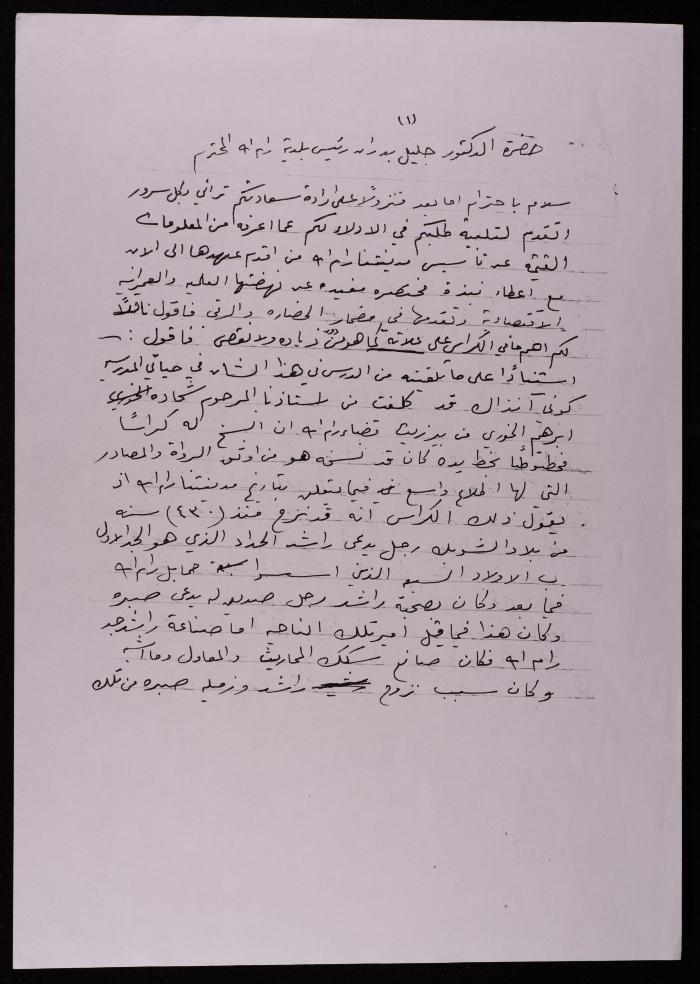 (١)
حضرة الدكتور جليل بدران رئيس بلدية رام الله المحترم
سلام باحترام اما بعد فنزولاً على ارادة سعادتكم تراني بكل سرور
اتقدم لتلبية طلبكم في الادلاء لكم عما اعرفه من المعلومات
القيمة عن تأسيس مدينتنا رام الله من اقدم عهدها الى الان
مع اعطاء نبذة مختصره مفيده عن نهضتها العلميه والعمرانيه
الاقتصادية وتقدمها في مضمار الحضاره والرقي فاقول ناقلاً
لكم اهم ما في الكراس على علاته كما هو دون زياده ولا نقص فاقول :ـ
استناداً على ما تلقيته من الدرس في هذا الشان في حياتي المدرسيه
كوني آنذاك قد كلفت من استاذنا المرحوم شحاده الخوري
ابرهيم الخوري من بيرزيت قضاء رام الله ان انسخ له كراساً
مخطوطاً بخط يده كان قد نسخه هو من اوثق الرواة والمصادر
التي لها اطلاع واسع فيما يتعلق بتاريخ مدينتنا رام الله اذ
يقول ذلك الكراس انه قد نزح منذ (٤٣٠) سنه
من بلاد الشوبك رجل يدعى راشد الحداد الذي هو الجد الاول
الاولاد الذين اسسوا حمايل رام الله
فيما بعد وكان بصحبة راشد رجل صديق له يدعى صبره
وكان هذا فيما قيل امير تلك الناحيه اما صناعة راشد جد
رام الله فكان صانع سكك المحاريث والمعاول وما اشبه
وكان سبب نزوح راشد وزميله صبره من تلك